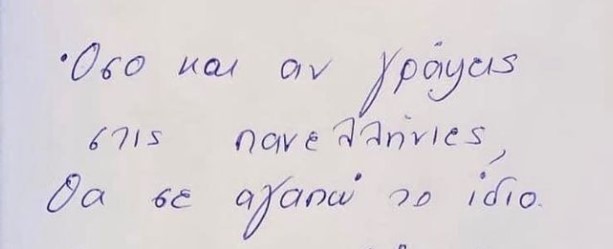 Όσο και αν γράψεις
στις πανελλήνιες,
θα σε αγαπώ το ίδιο.